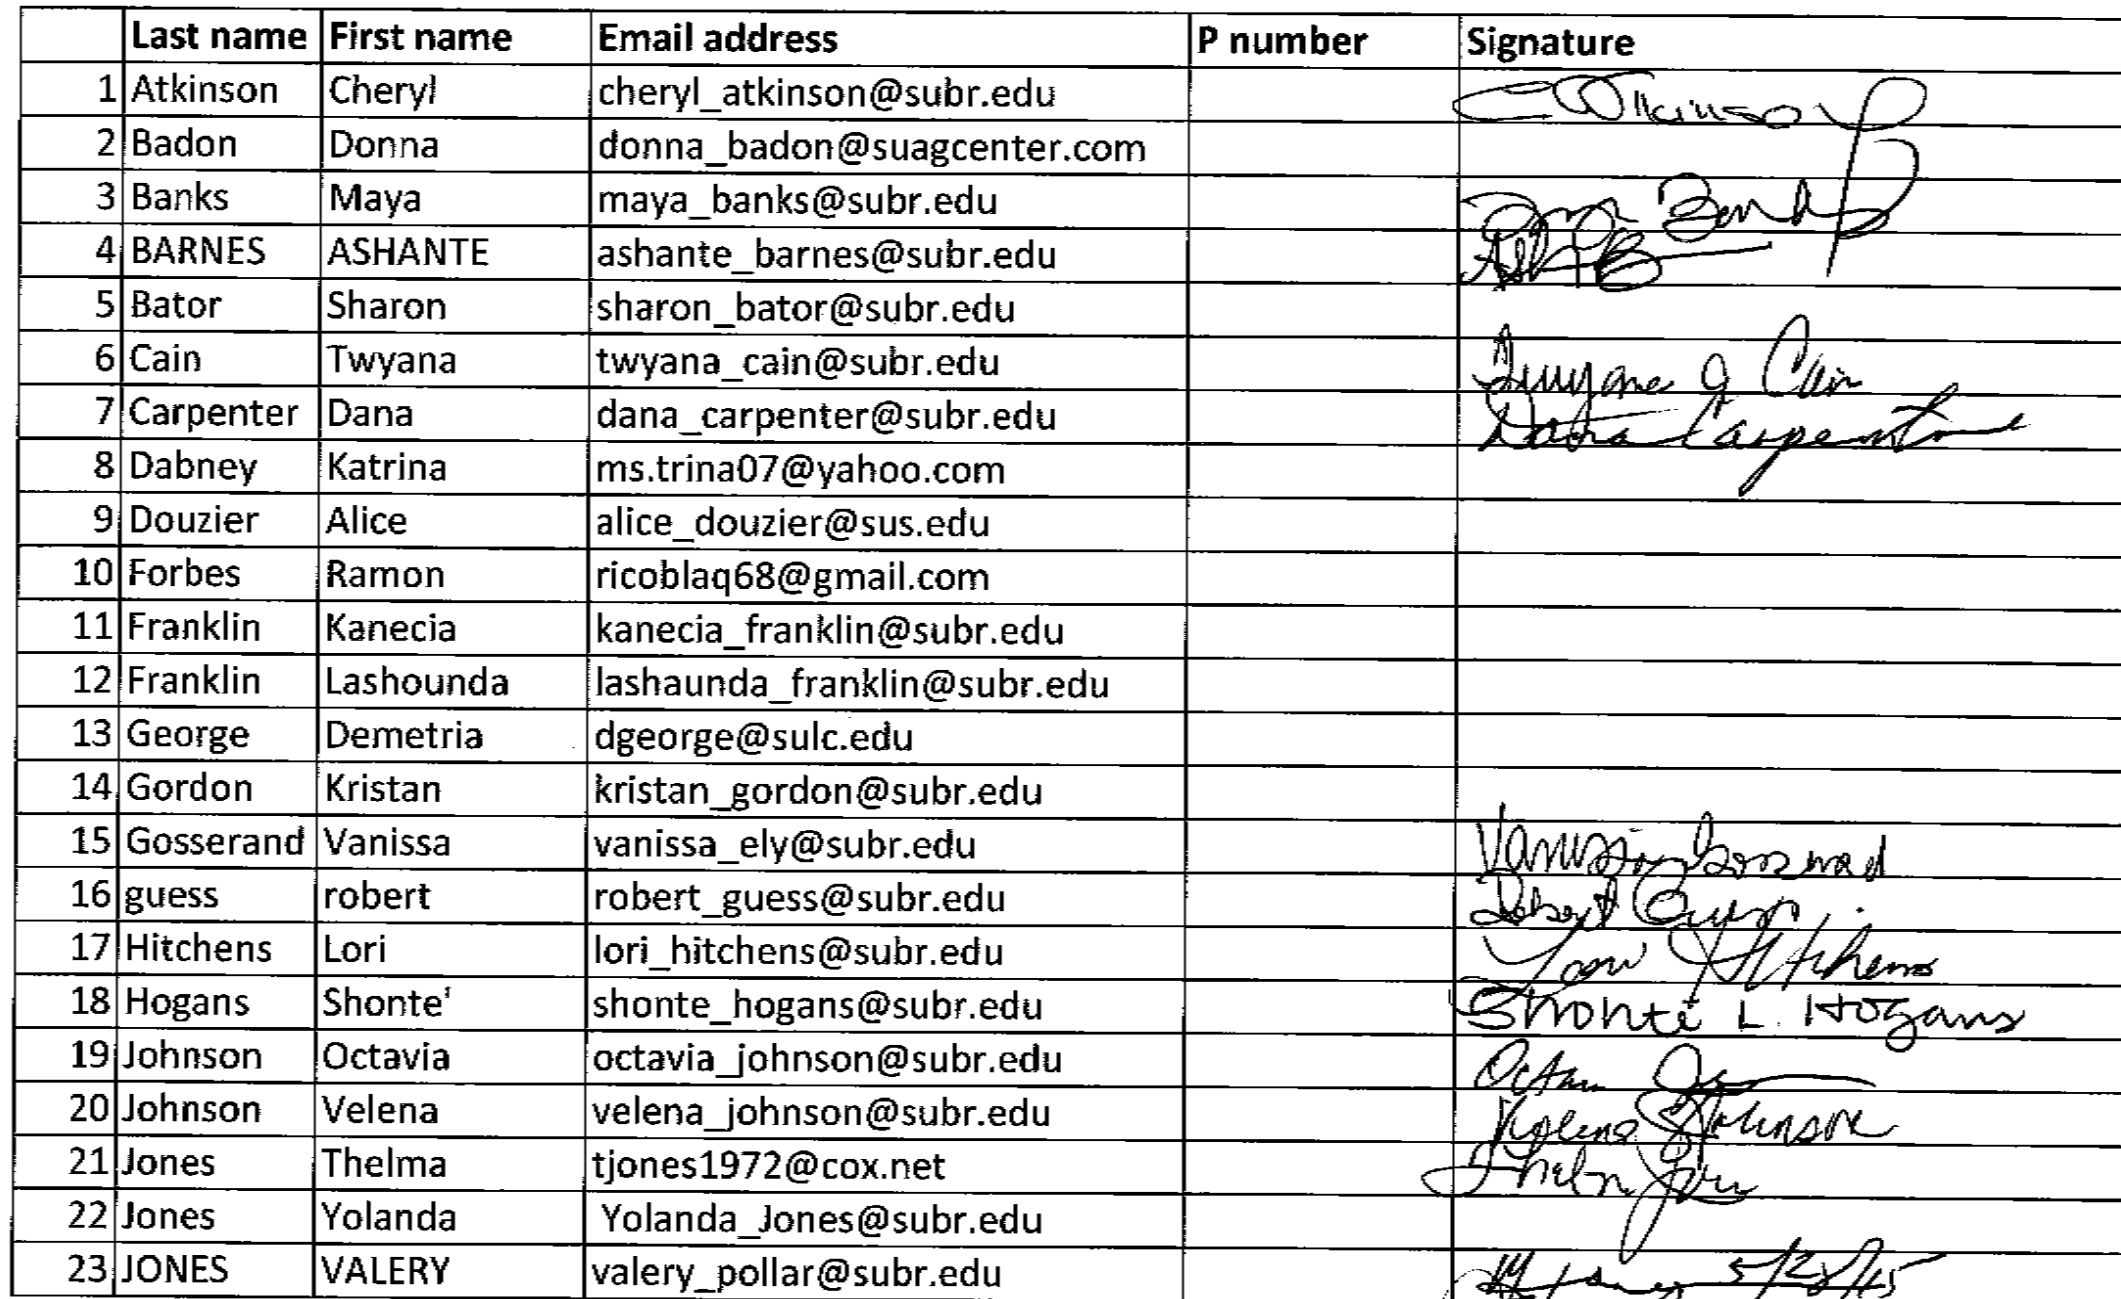 Last name First name Email address P number Signature
1 Atkinson Cheryl cheryl_atkinson@subr.edu C Atkinson
2 Badon Donna donna_badon@suagcenter.com
3 Banks Maya maya_banks@subr.edu
4 BARNES ASHANTE ashante_barnes@subr.edu
5 Bator Sharon sharon_bator@subr.edu
6 Cain Twyana twyana_cain@subr.edu Twyana J Cain
7 Carpenter Dana dana_carpenter@subr.edu Dana Carpenter
8 Dabney Katrina ms.trina07@yahoo.com
9 Douzier Alice alice_douzier@sus.edu
10 Forbes Ramon ricoblaq68@gmail.com
11 Franklin Kanecia kanecia_franklin@subr.edu
12 Franklin Lashounda lashaunda_franklin@subr.edu
13 George Demetria dgeorge@sulc.edu
14 Gordon Kristan kristan_gordon@subr.edu
15 Gosserand Vanissa vanissa_ely@subr.edu Vanissa Gosserand
16 guess robert robert_guess@subr.edu Robert Guess
17 Hitchens Lori lori_hitchens@subr.edu Lori Hitchens
18 Hogans Shonte' shonte_hogans@subr.edu Shonté L. Hogans
19 Johnson Octavia octavia_johnson@subr.edu
20 Johnson Velena velena_johnson@subr.edu Velena Johnson
21 Jones Thelma tjones1972@cox.net Thelma Jones
22 Jones Yolanda Yolanda_Jones@subr.edu
23 JONES VALERY valery_pollar@subr.edu 5/28/15